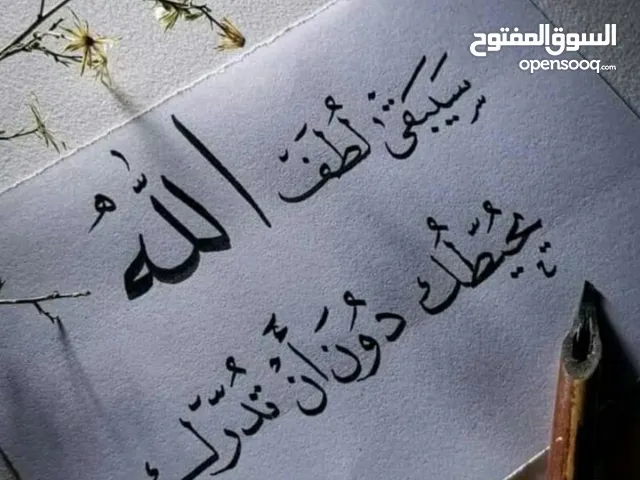 السوق المفتوح
opensooq.com
سيبقى لطف الله
يحيطك دون أن تدرك